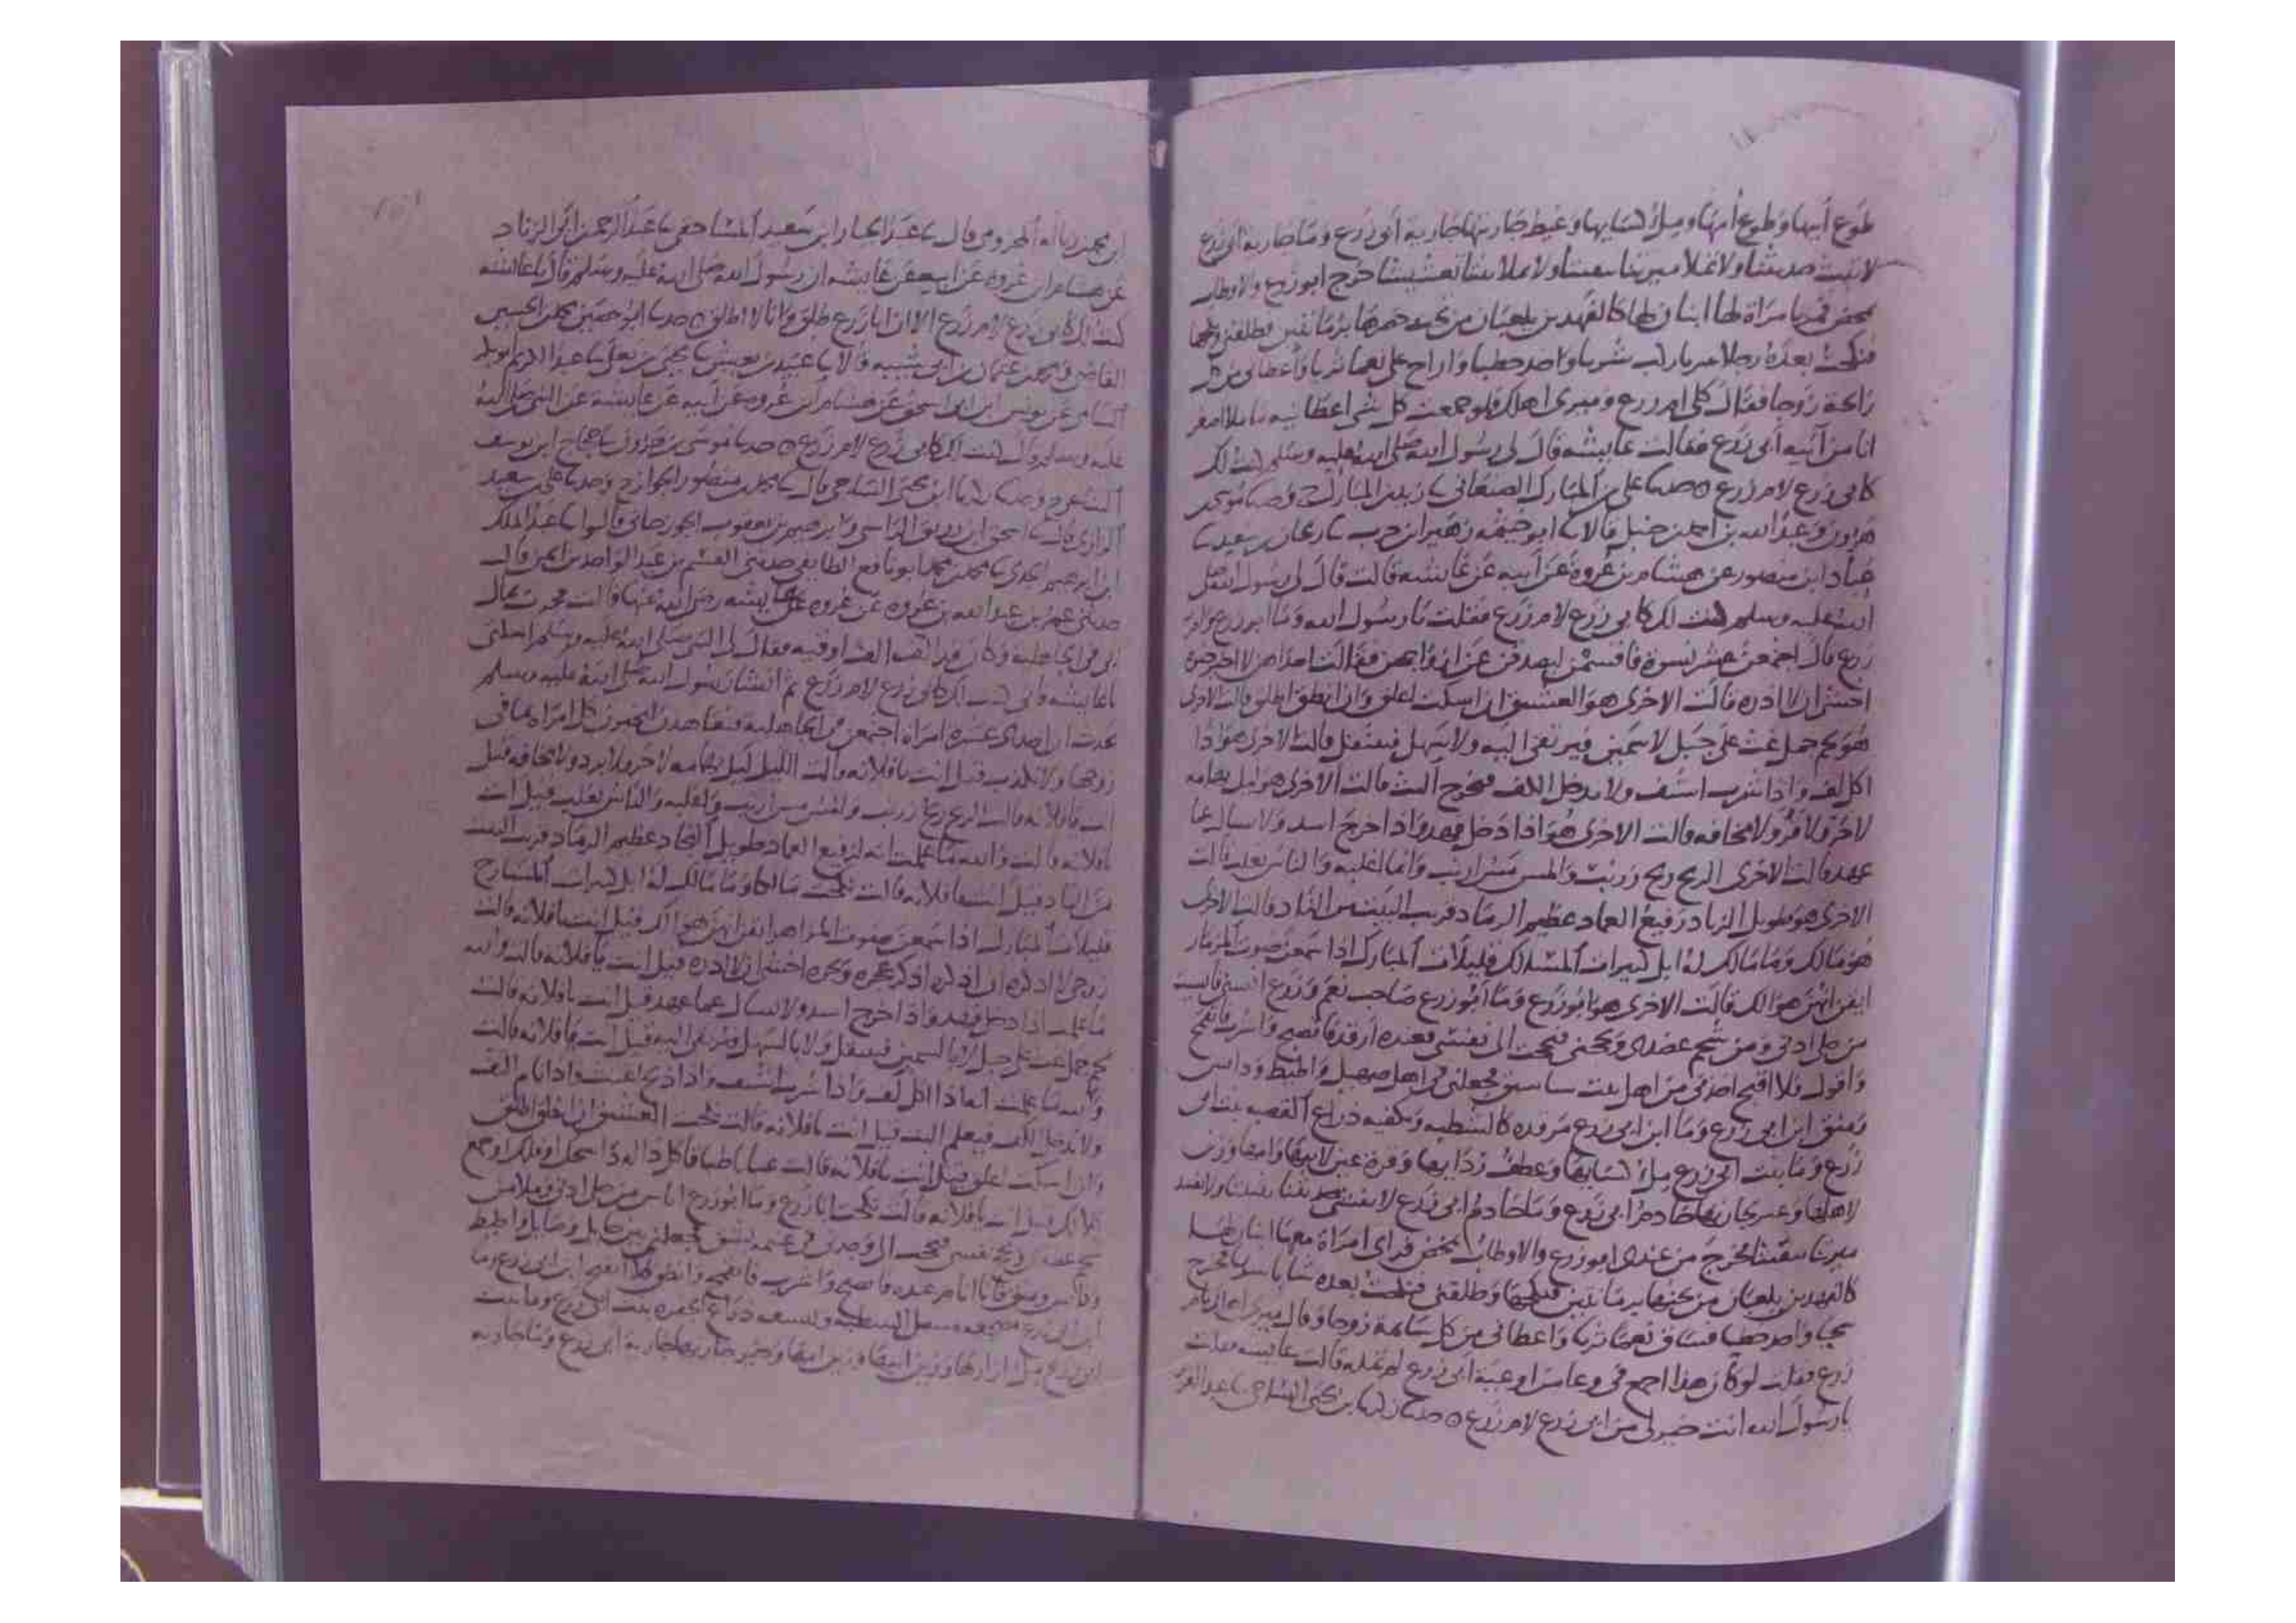 طوع أبيها وطوع أمها وملء كسايها وغيظ جارتها جارية أبي زرع وما جارية أبي زرع
لا تبث حديثنا ولا تملا بيتنا تعشيشا خرج ابو زرع والاوطاب
تمخض فمر بامراة لها ابنان لها كالفهدين يلعبان من تحت خصرها برمانتين فطلقني ونكحها
فنكحت بعده رجلا سريا ركب شريا واخذ خطيا واراح علي نعما ثريا وأعطاني من كل
رائحة زوجا فقال كلي ام زرع وميري اهلك فلو جمعت كل شي اعطانيه ما ملا اصغر
انا من آنية أبي زرع فقالت عايشه قال لي رسول الله صلى الله عليه وسلم كنت لك
كابي زرع لام زرع ○ حدثنا علي بن المبارك الصنعاني زيد بن المبارك وحدثنا موسى بن
هرون وعبد الله بن احمد بن حنبل قالا ابو خيثمه زهير ابن حرب ريحان بن سعيد
عباد ابن منصور عن هشام بن عروة عن أبيه عن عايشه قالت قال لي رسول الله صلى
الله عليه وسلم كنت لك كابي زرع لام زرع فقلت يا رسول الله وما ابو زرع وام
زرع قال اجتمعن عشر نسوة فاقسمن ليصدقن عن ازواجهن فقالت احداهن لا اخبر خبره
اخشى ان لا اذره قالت الاخرى هو العشنق ان اسكت اعلق وان انطق اطلق قالت الاخرى
هو لحم جمل غث على جبل لا سمين فيرتقى اليه ولا سهل فينتقل قالت الاخرى هو اذا
اكل لف واذا شرب اشتف ولا يدخل الكف فيخرج البث قالت الاخرى هو ليل تهامه
لا حر ولا قر ولا مخافه قالت الاخرى هو اذا دخل فهد واذا خرج اسد ولا يسال عما
عهد قالت الاخرى الريح ريح زرنب والمس مس ارنب وانا اغلبه والناس يغلب قالت
الاخرى هو طويل النجاد رفيع العماد عظيم الرماد قريب البيت من الناد قالت الاخرى
هو مالك وما مالك له ابل كثيرات المسالك قليلات المبارك اذا سمعن صوت المزمار
ايقن انهن هوالك قالت الاخرى هو ابو زرع وما أبو زرع صاحب نعم وزرع اناس
من حلي اذني ومن شحم عضدي وبجحني فبجحت الى نفسي فعنده ارقد فاتصبح واشرب فاتقمح
واقول فلا اقبح اخذني من اهل بيت فجعلني في اهل صهيل واطيط وداس
ومنق ابن ابي زرع وما ابن ابي زرع مرقده كالشطبه وتكفيه ذراع الجفرة بنت ابي
زرع وما بنت ابي زرع ملء كسايها وعطف ردايها وزين
لاهلها خادم ابي زرع وما خادم ابي زرع لا تنقث
ميرتنا تنقيثا فخرج من عندي ابو زرع والاوطاب تمخض فراى امراة معها ابنان لها
كالفهدين يلعبان من تحتها برمانتين فنكحها وطلقني فنكحت بعده شابا سريا فخرج
واخذ خطيا فساق نعما ثريا واعطاني من كل سايمة زوجا وقال ميري اهلك يا ام
زرع فقلت لو كان هذا اجمع في وعا من اوعية ابي زرع لم تمله قالت عايشه فقلت
يا رسول الله انت خير لي من ابي زرع لام زرع ○ حدثنا زكريا بن يحيى الساجي عبد الله
قال عبد الجبار ابن سعيد المساحقي عبد الرحمن ابن ابي الزناد
عن هشام ابن عروة عن ابيه عن عايشه ان رسول الله صلى الله عليه وسلم قال يا عايشه
كنت لك كابي زرع لام زرع الا ان ابا زرع طلق وانا لا اطلق ○ حدثنا ابو حصين محمد بن الحسين
القاضي ومحمد بن عثمان بن أبي شيبه قالا عبيد بن يعيش يحيى بن يعلى
عن يونس ابن ابي اسحق عن هشام ابن عروه عن ابيه عن عايشه عن النبي صلى الله
عليه وسلم قال كنت لك كابي زرع لام زرع ○ حدثنا موسى بن هرون حجاج ابن يوسف
وحدثنا زكريا بن يحيى الساجي قال محمد بن منصور الجواز وحدثنا علي بن سعيد
الرازي قال اسحق ابن وابرهيم بن يعقوب الجوزجاني قالوا عبد الملك
ابن ابرهيم الجدي محمد بن محمد ابو نافع الطايفي حدثني القسم بن عبد الواحد بن ايمن قال
حدثني عمر بن عبد الله بن عروه عن عروه عن عايشه رضي الله عنها قالت فخرت بمال
ابي في الجاهليه وكان قدر الف الف اوقيه فقال لي النبي صلى الله عليه وسلم اسكتي
يا عايشه فاني كنت لك كابي زرع لام زرع ثم انشا رسول الله صلى الله عليه وسلم
يحدث ان احدى عشره امراة اجتمعن في الجاهليه فتعاهدن لتخبرن كل امراة بما في
زوجها ولا تكذب قيل انت يا فلانه قالت الليل ليل تهامه لا حر ولا برد ولا مخافه قيل
انت يا فلانه قالت الريح ريح زرنب والمس مس ارنب واغلبه والناس يغلب قيل انت
يا فلانه قالت والله ما علمت انه لرفيع العماد طويل النجاد عظيم الرماد قريب البيت
من الناد قيل انت يا فلانه قالت نكحت مالكا وما مالك له ابل كثيرات المسارح
قليلات المبارك اذا سمعن صوت المزاهر ايقن انهن هوالك قيل انت يا فلانه قالت
زوجي لا اذكره ان اذكره اذكر عجره وبجره اخشى ان لا اذره قيل انت يا فلانه قالت والله
ما علمت اذا دخل فهد واذا خرج اسد ولا يسال عما عهد قيل انت يا فلانه قالت
لحم جمل غث على جبل لا بالسمين فينتقل ولا بالسهل فيرتقى اليه قيل انت يا فلانه قالت
والله ما علمت انه اذا اكل لف واذا شرب اشتف واذا ذبح اغتث واذا نام التف
ولا يدخل الكف فيعلم البث قيل انت يا فلانه قالت نكحت العشنق ان انطق اطلق
وان اسكت اعلق قيل انت يا فلانه قالت عياياء طباقا كل داء له داء شجك او فلك او جمع
كلا لك قيل انت يا فلانه قالت نكحت ابا زرع وما ابو زرع اناس من حلي اذني وملا من
شحم عضدي وبجح نفسي فبجحت الي وجدني في غنيمه بشق فجعلني بين صاهل واطيط
ودائس ومنق فانا انام عنده فاتصبح واشرب فاتقمح وانطق فلا اقبح ابن ابي زرع وما
ابن ابي زرع مضجعه مسل الشطبه وتشبعه ذراع الجفره بنت ابي زرع وما بنت
ابي زرع ملء ازارها وزين ابيها وزين امها جاريه ابي زرع وما جاريه